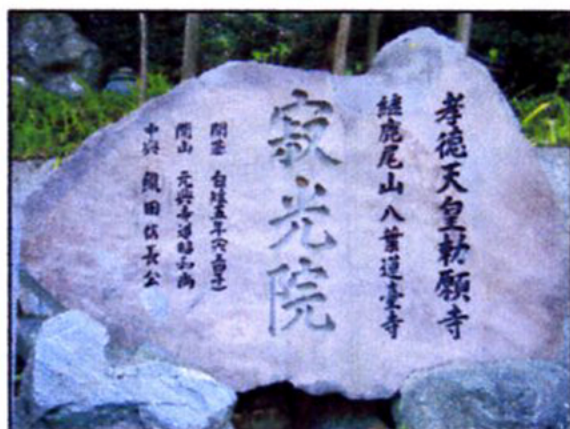 孝徳天皇勅願寺
継鹿尾山八葉蓮臺寺
寂光院
開基 白雉五年(六五四年)
開山 元興寺道昭和尚
中興 織田信長公